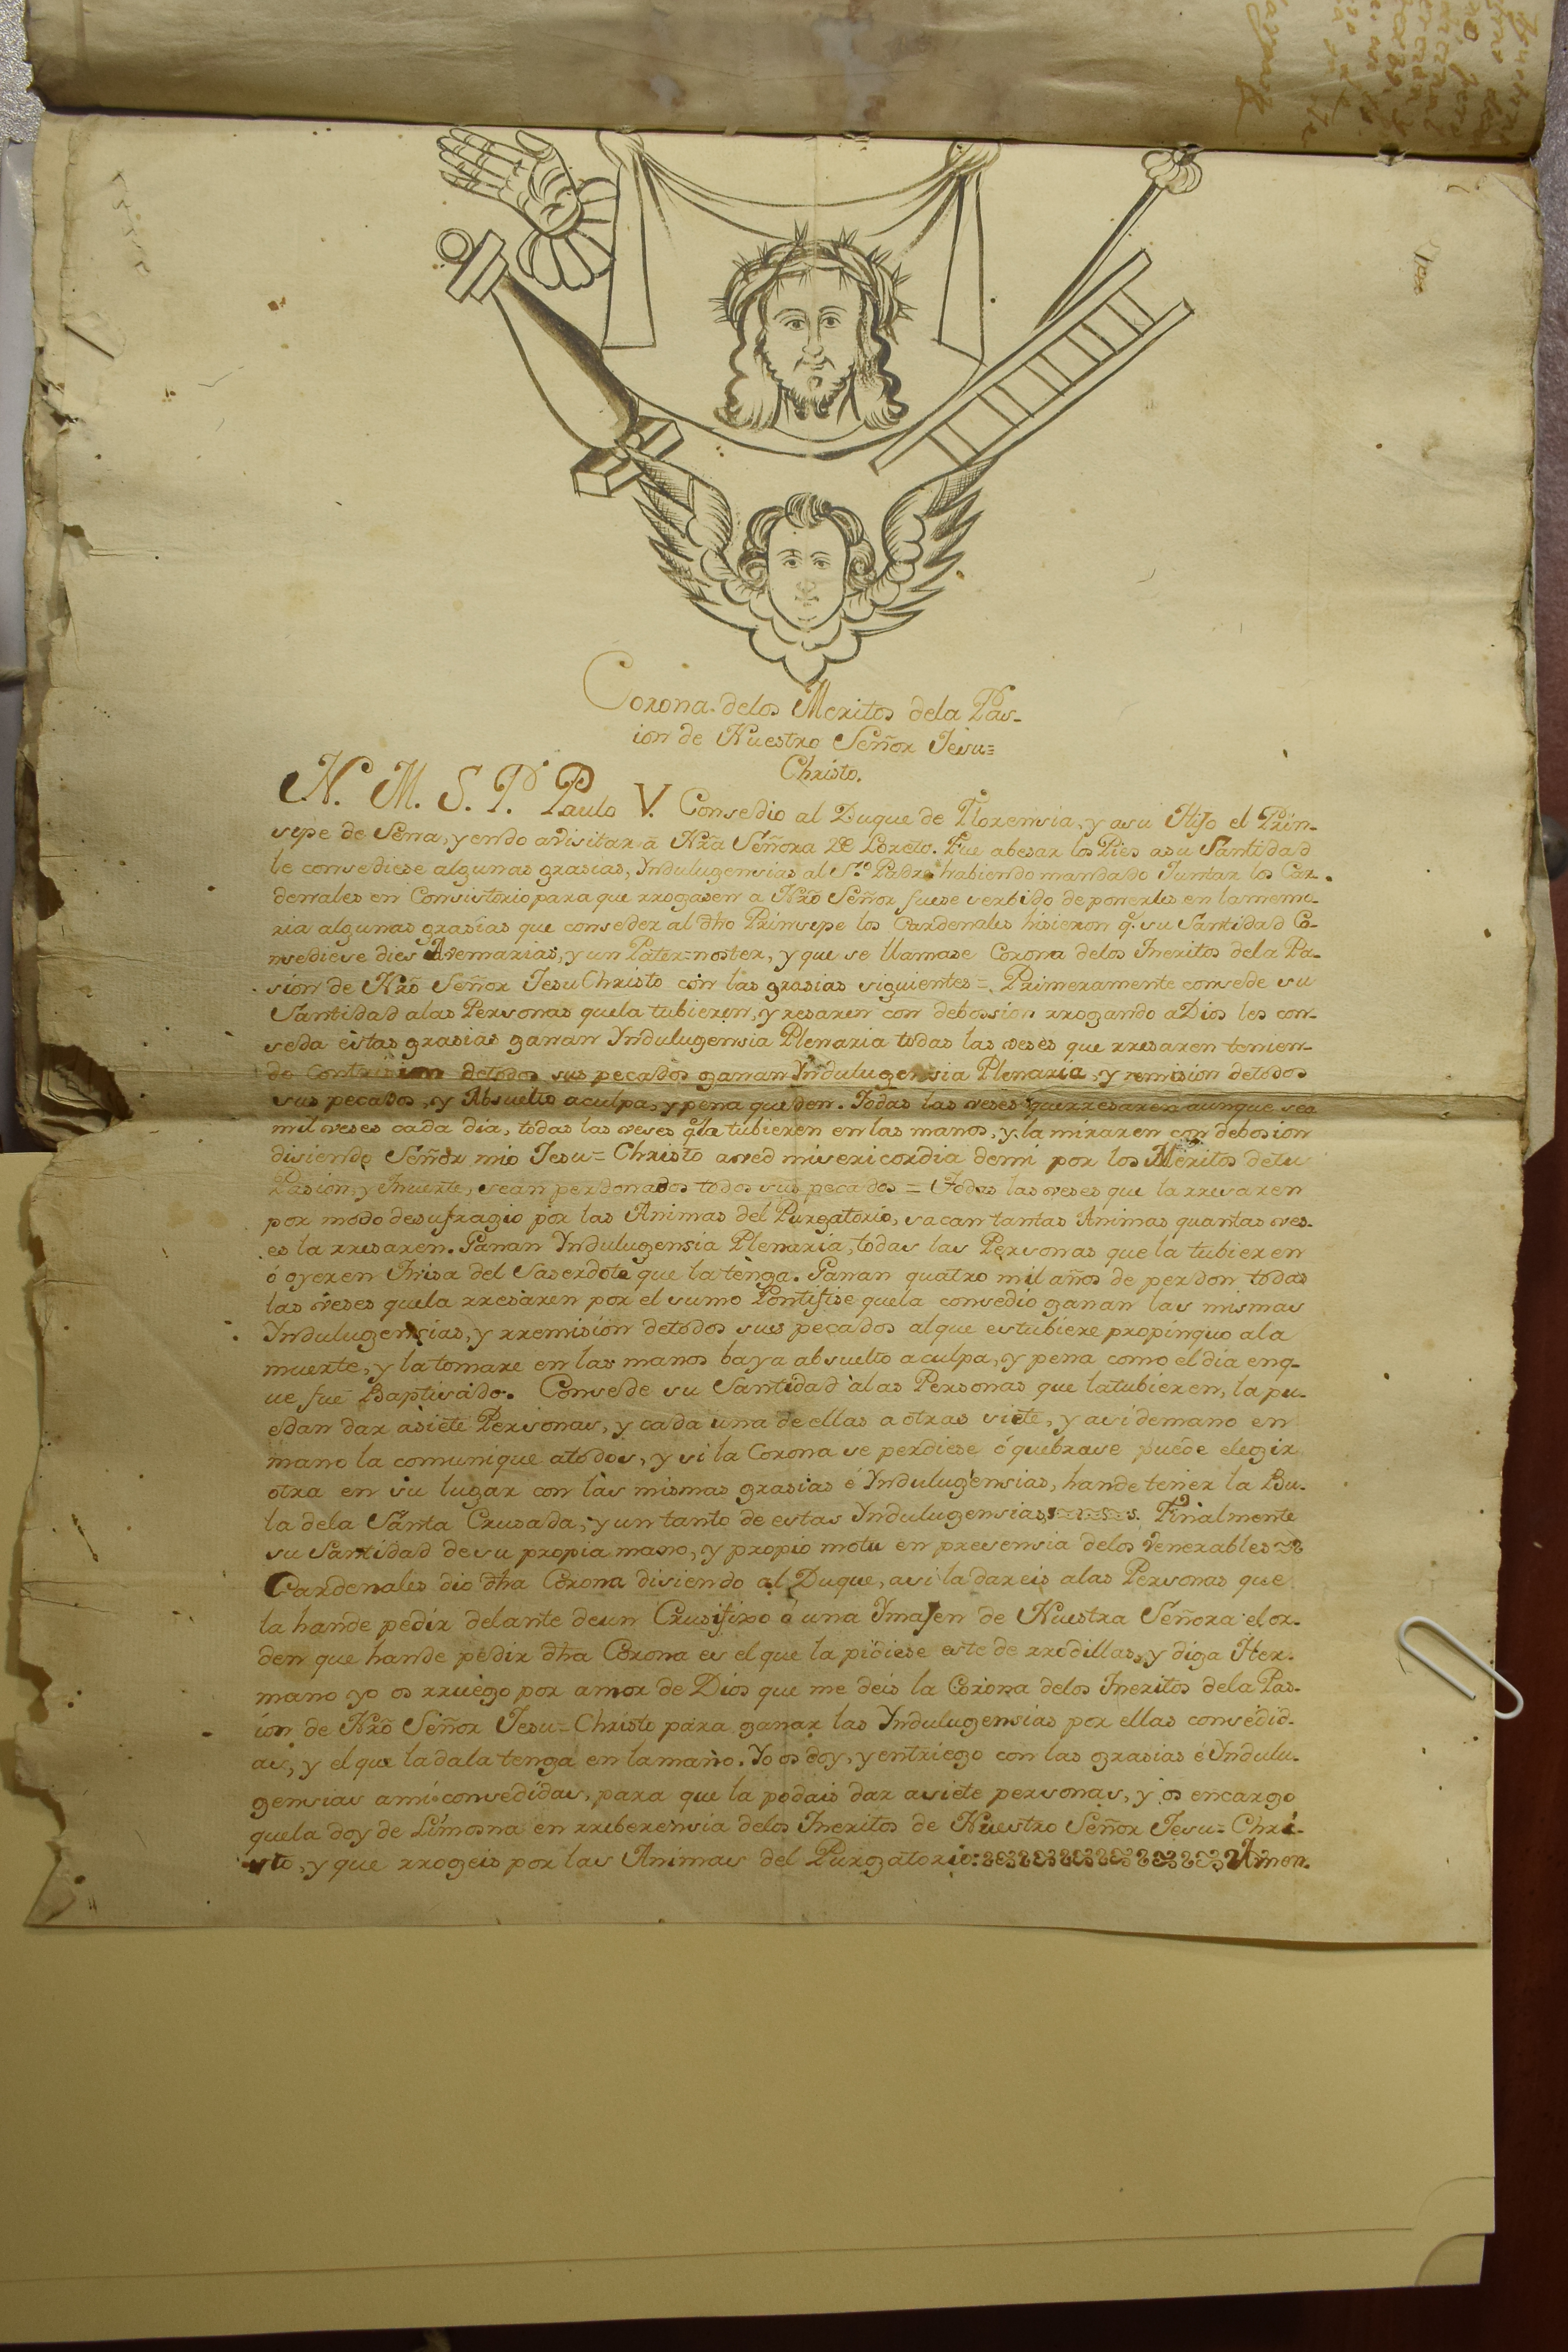 Corona delos Meritos dela Pas-
ion de Nuestro Señor Jesu=
Christo.
N. M. S. P.ᵉ Paulo V. Consedio al Duque de Florensia, y asu Hijo el Prin-
sipe de Sena, yendo avisitar à Nrã Señora De Loreto. Fue abesar los Pies asu Santidad
le consediese algunas grasias, Yndulugensias al S.ᵗᵒ Padre habiendo mandado Juntar los Car-
denales en Consistorio para que rrogasen a Nrõ Señor fuese serbido de ponerles en lamemo-
ria algunas grasias que conseder al dho Prinsepe los Cardenales hisieron q.ᵉ su Santidad Co-
nsediese dies Avemarias, y un Pater=noster, y que se llamase Corona delos Meritos dela Pa-
sion de Nrõ Señor Jesu Christo con las grasias siguientes = Primeramente consede su
Santidad alas Personas quela tubieren, y resaren con debossion rrogando aDios les con-
seda estas grasias ganan Yndulugensia Plenaria todas las veses que rresaren tenien-
do Contrision detodos sus pecados ganan Yndulugensia Plenaria, y remision detodos
sus pecados, y Absuelto aculpa, y pena queden. Todas las veses querresaren aunque sea
mil veses cada dia, todas las veses q.ᵉ la tubieren en las manos, y la miraren con debosion
disiendo Señor mio Jesu=Christo aved misericordia demi por los Meritos detu
Pasion, y Muerte, sean perdonados todos sus pecados = Todas las veses que la rresaren
por modo desufragio por las Animas del Purgatorio, sacan tantas Animas quantas ves-
es la rresaren. Ganan Yndulugensia Plenaria, todas las Personas que la tubieren
ó oyeren Misa del Saserdote que la tenga. Ganan quatro mil años de perdon todas
las veses quela rresaren por el sumo Pontifise quela consedio ganan las mismas
Yndulugensias, y rremision detodos sus pecados alque estubiere propinquo ala
muerte, y la tomare en las manos baya absuelto aculpa, y pena como el dia enq-
ue fue Baptisado. Consede su Santidad alas Personas que latubieren, la pu-
edan dar asiete Personas, y cada una de ellas aotras siete, y asi demano en
mano la comunique atodos, y si la Corona se perdiese ó quebrase puede elegir
otra en su lugar con las mismas grasias é Yndulugensias, hande tener la Bu-
la dela Santa Crusada, y un tanto de estas Yndulugensias. Finalmente
su Santidad desu propia mano, y propio motu en presensia delos Venerables
Cardenales dio dha Corona disiendo al Duque, asi la dareis alas Personas que
la hande pedir delante deun Crusifixo ó una Ymajen de Nuestra Señora el or-
den que hande pedir dha Corona es el que la pidiese este de rrodillas, y diga Her-
mano yo os rruego por amor de Dios que me deis la Corona delos Meritos dela Pas-
ion de Nrõ Señor Jesu=Christo para ganar las Yndulugensias por ellas consedid-
as, y el que la dala tenga en lamano. Yo os doy, y entriego con las grasias é Yndulu-
gensias ami consedidas, para que la podais dar asiete personas, y os encargo
quela doy de Limosna en rreberensia delos Meritos de Nuestro Señor Jesu=Chri-
sto, y que rrogeis por las Animas del Purgatorio: Amen.